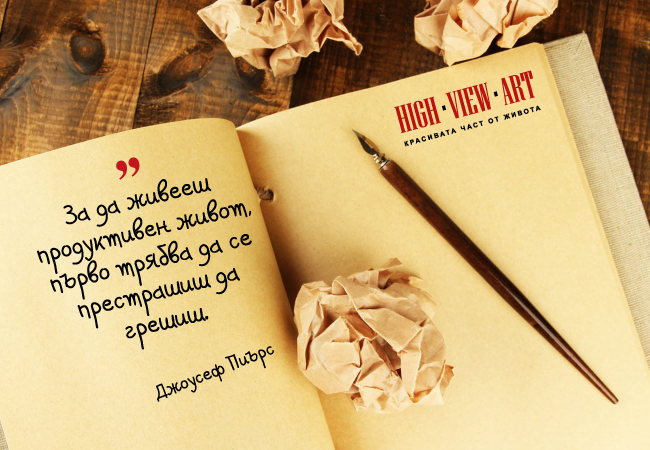 ”
За да живееш
продуктивен живот,
първо трябва да се
престрашиш да
грешиш.
Джоусеф Пиърс
HIGH·VIEW·ART
КРАСИВАТА ЧАСТ ОТ ЖИВОТА